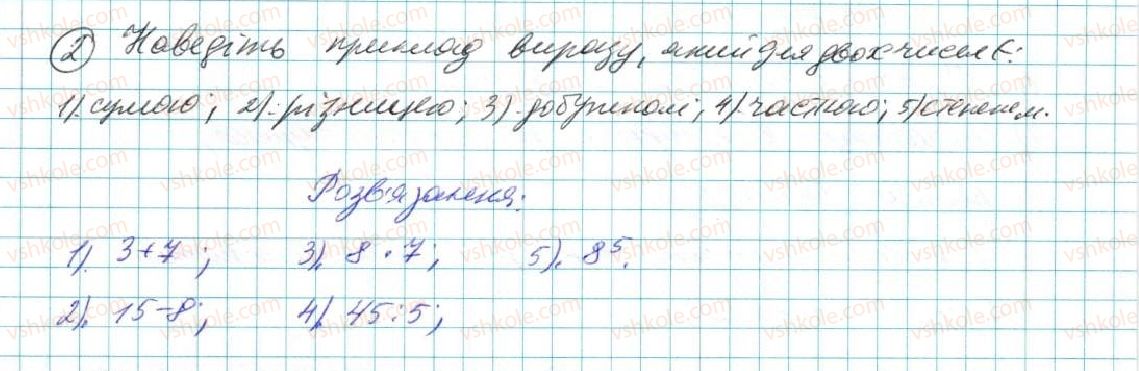 2 Наведіть приклад виразу, який для двох чисел є:
1). сумою; 2). різницею; 3). добутком; 4). часткою; 5) степенем.
Розв'язання:
1). 3+7; 3). 8 · 7; 5). 8⁵.
2). 15-8; 4). 45:5;